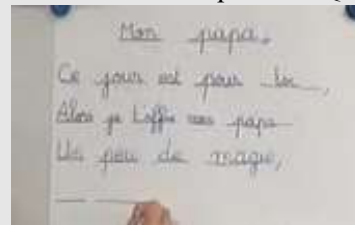 Mon papa.
Ce jour est pour toi,
Alors je t'offre mon papa
Un peu de magie,